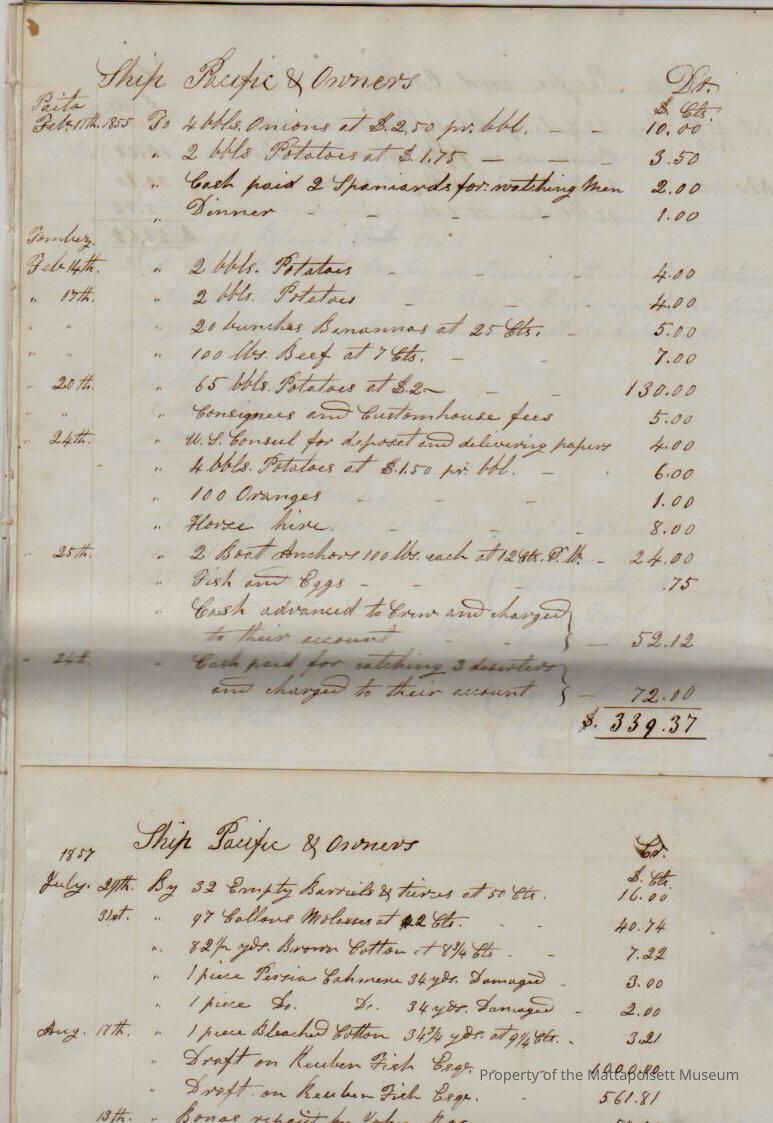 Ship Pacific & Owners Dr.
Paita $. Cts.
Feb. 11th. 1855 To 4 bbls. Onions at $.2,50 pr. bbl. - - 10.00
" 2 bbls Potatoes at $.1.75 - - - 3.50
" Cash paid 2 Spaniards for watching Men 2.00
" Dinner - - - 1.00
Tombez.
Feb 14th. " 2 bbls. Potatoes - - 4.00
" 17th. " 2 bbls. Potatoes - - 4.00
" " " 20 bunches Banannas at 25 Cts. - 5.00
" " " 100 lbs. Beef at 7 Cts. - - 7.00
" 20th. " 65 bbls. Potatoes at $.2~ - - 130.00
" " " Consignees and Customhouse fees 5.00
" 24th. " U.S. Consul for deposet and delivering papers 4.00
" 4 bbls. Potatoes at $.1.50 pr. bbl. - 6.00
" 100 Oranges - - - 1.00
" Horse hire. - - - 8.00
" 25th. " 2 Boat Anchors 100 lbs. each at 12 Cts. P. lb. - 24.00
" Fish and Eggs - - - .75
" Cash advanced to Crew and charged
to their account - - - 52.12
" 24th. " Cash paid for catching 3 deserters
and charged to their account - 72.00
$. 339.37
Ship Pacific & Owners Cr.
1857 $. Cts.
July. 29th. By 32 Empty Barriels & tierces at 50 Cts. 16.00
31st. " 97 Gallons Molasses at 42 Cts. - - 40.74
" 82½ yds. Brown Cotton at 8¾ Cts - - 7.22
" 1 piece Persia Cahmere 34 yds. Damaged - 3.00
" 1 piece Do. Do. 34 yds. Damaged - 2.00
Aug. 17th. " 1 piece Bleached Cotton 34¾ yds. at 9¼ Cts. - 3.21
" Draft on Reuben Fish Esqr. - - 1000.00
" Draft on Reuben Fish Esqr. - 561.81
13th. "
Property of the Mattapoisett Museum